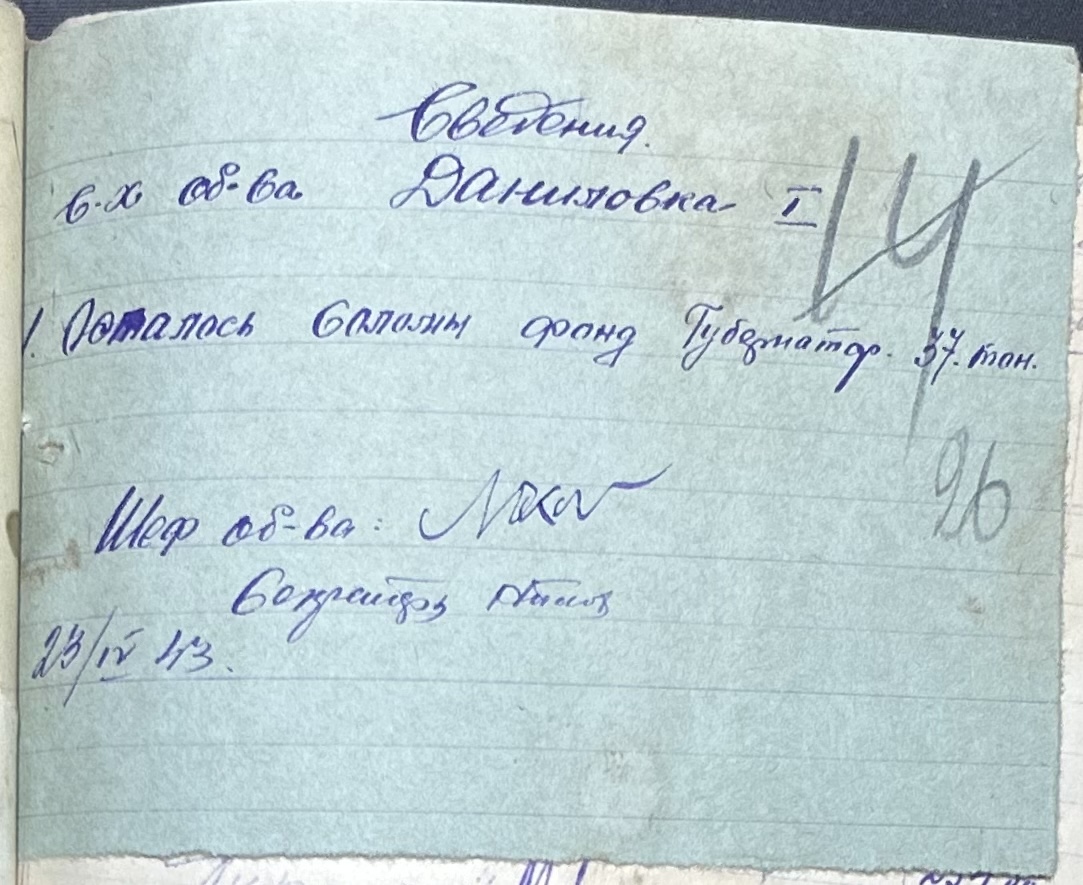 Сведения.
с-х об-ва Даниловка I
14
1. Осталось Соломы фонд Губернатор. 37. тон.
96
Шеф об-ва:
Секретарь
23/IV 43.